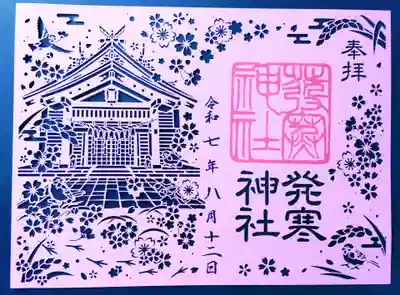 奉拝
發寒
神社
発寒
神社
令和七年八月十二日